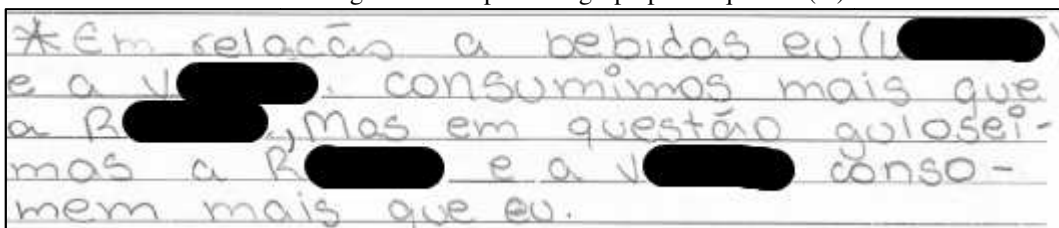 *Em relação a bebidas eu (L
e a V. consumimos mais que
a R, Mas em questão gulosei-
mas a R e a V conso-
mem mais que eu.